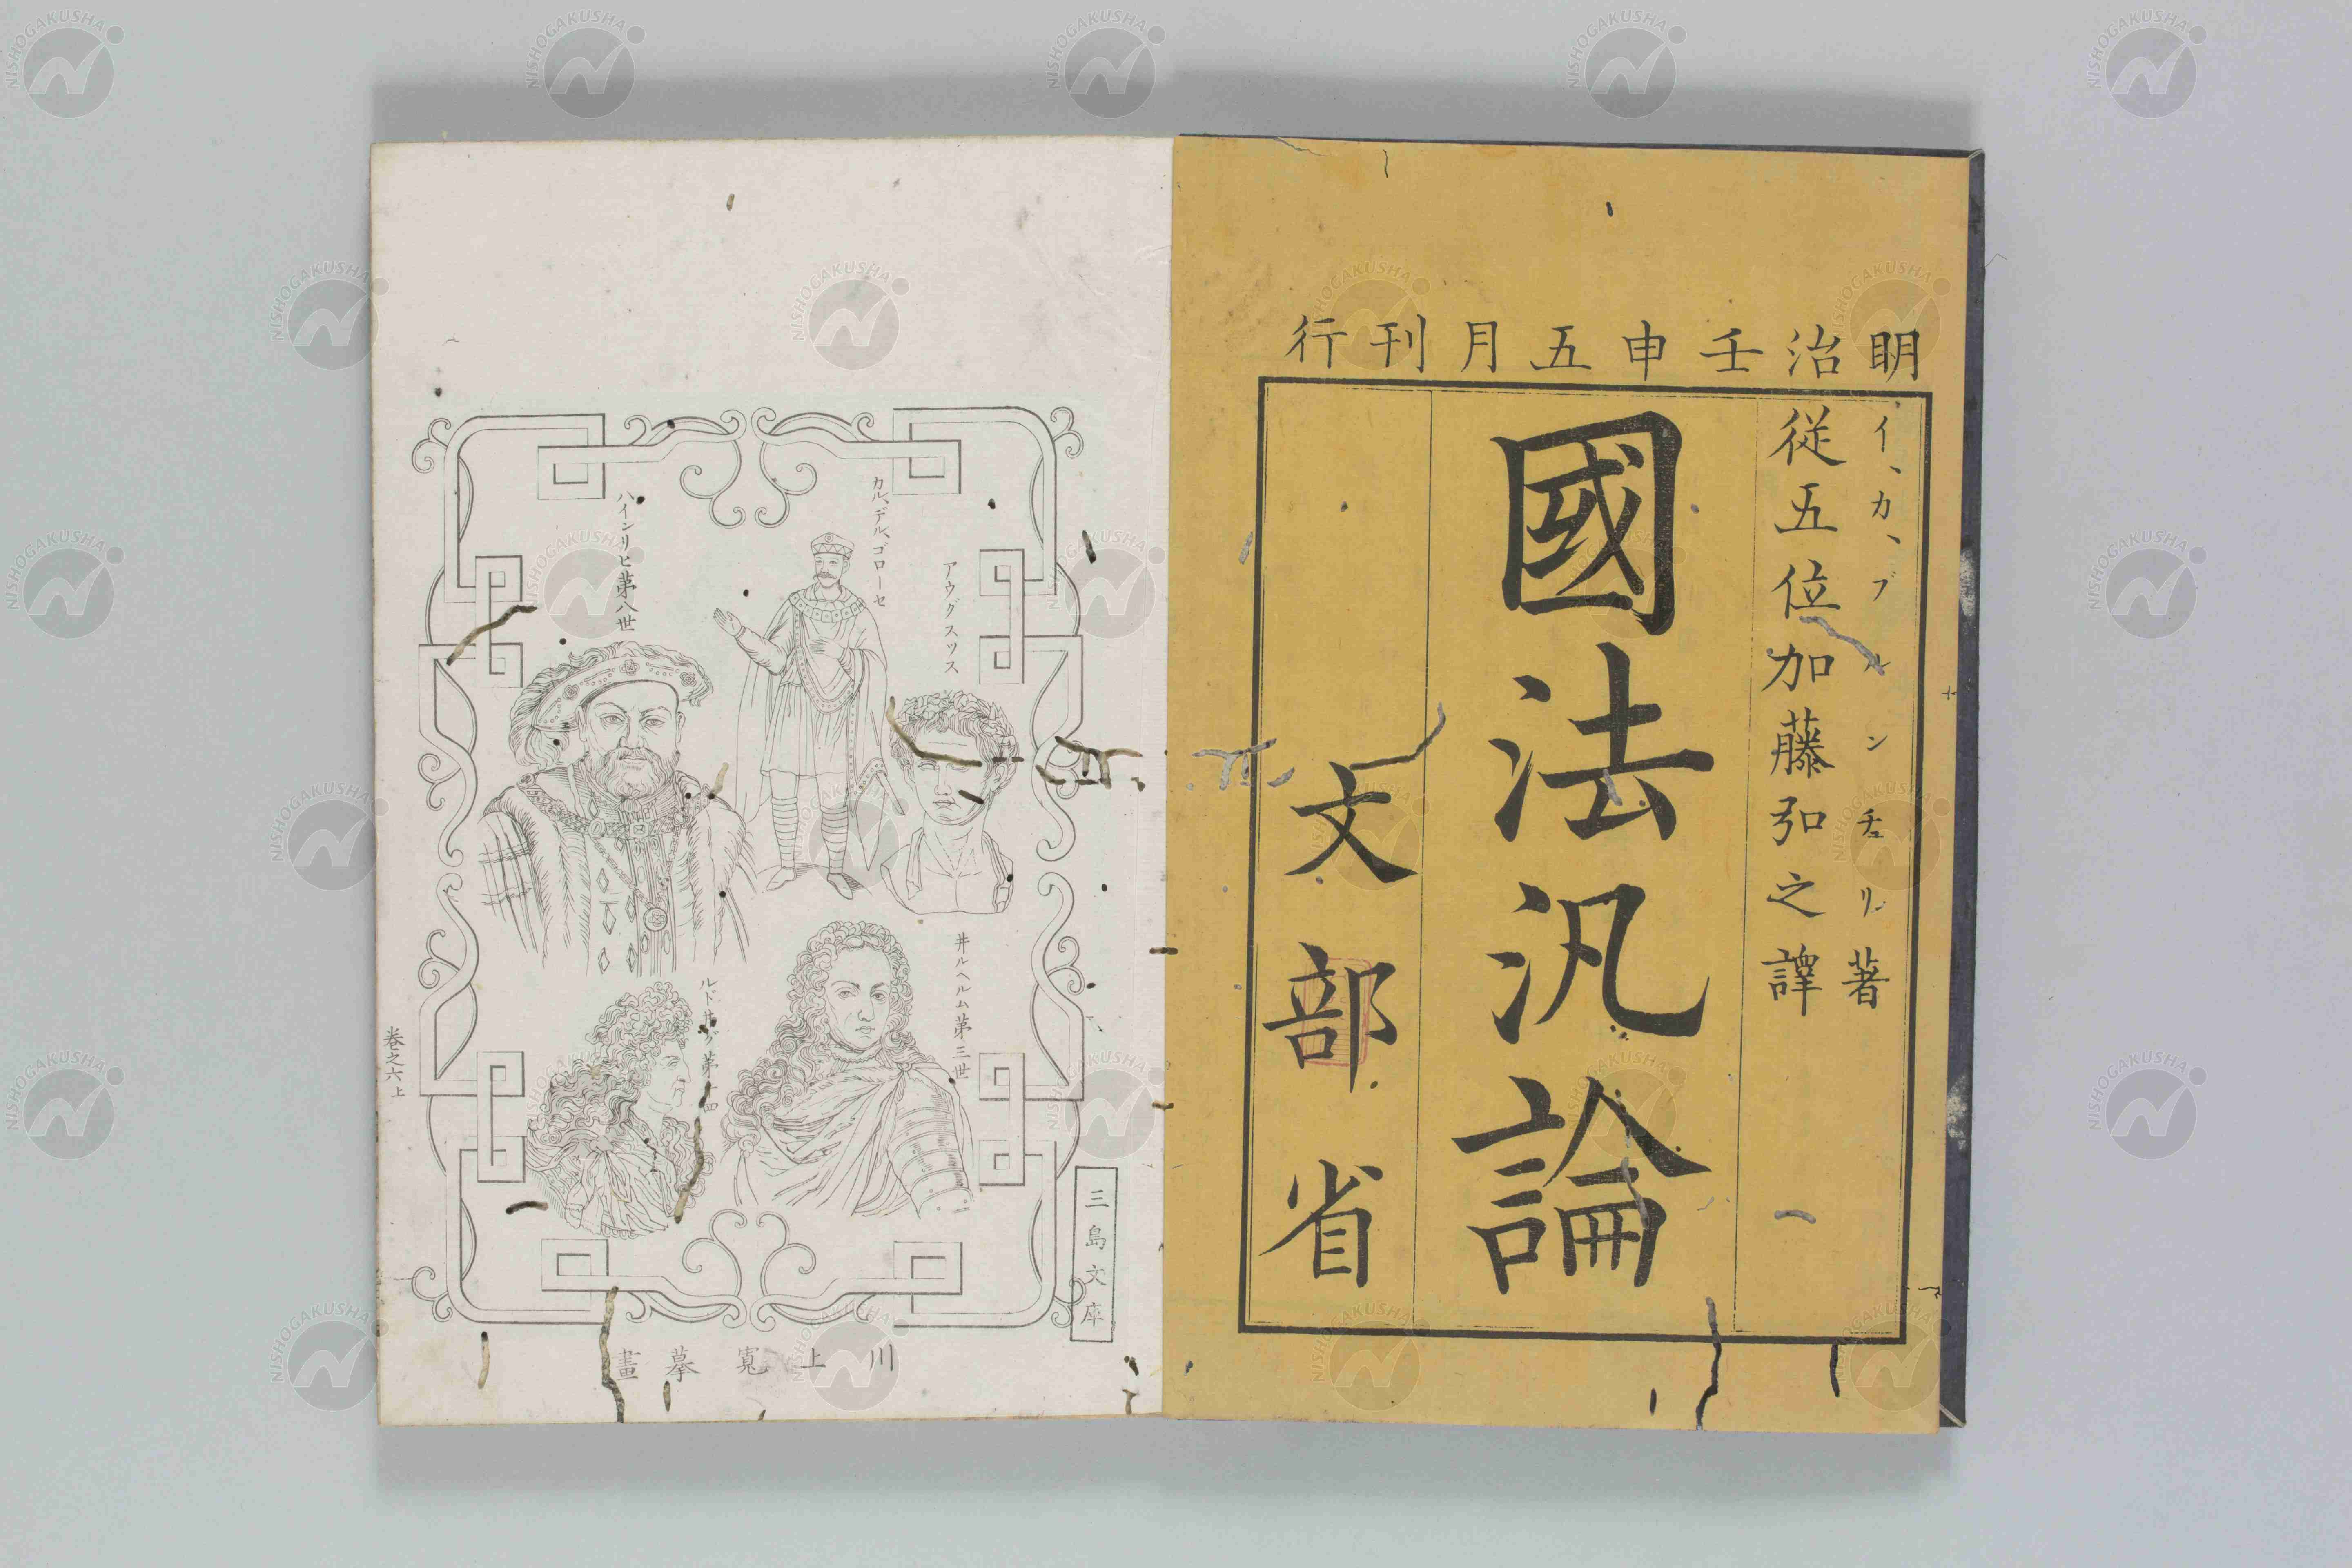 明治壬申五月刊行
イ、カ、ブルンチュリ著
従五位加藤弘之譯
國法汎論
文部省
アウグスツス
カル、デル、ゴローセ
ハインリヒ第八世
井ルヘルム第三世
ルドキヅ第十四
川上寛摹畫
三島文庫
巻之六上
NISHOGAKUSHA